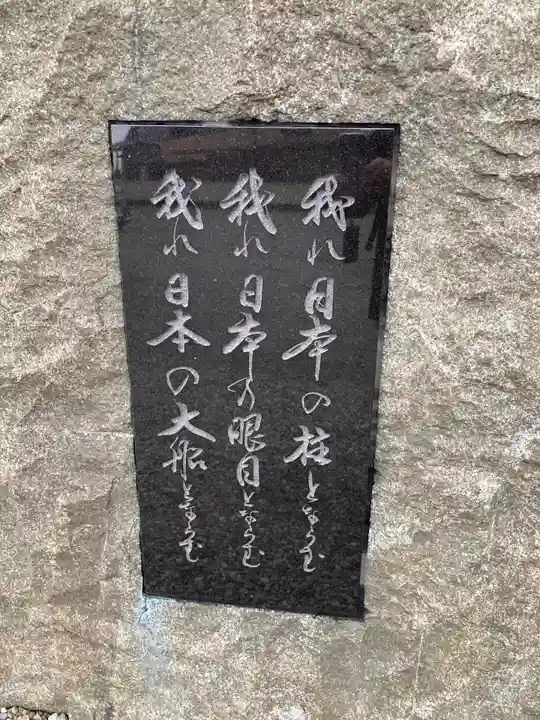 我れ日本の柱とならむ
我れ日本の眼目とならむ
我れ日本の大船とならむ